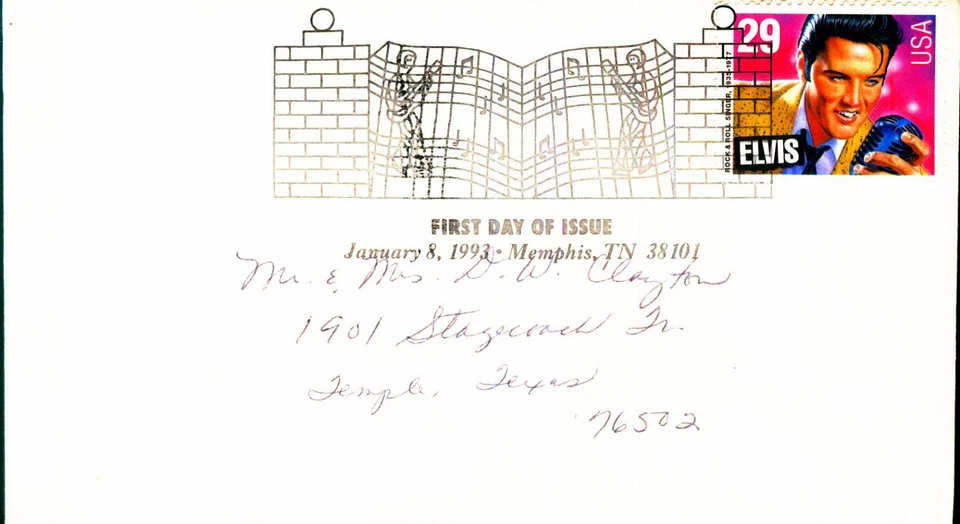 29
USA
ROCK & ROLL SINGER, 1935-1977
ELVIS
FIRST DAY OF ISSUE
January 8, 1993 • Memphis, TN 38101
Mr. & Mrs. D. W. Clayton
1901 Stagecoach Tr.
Temple, Texas
76502